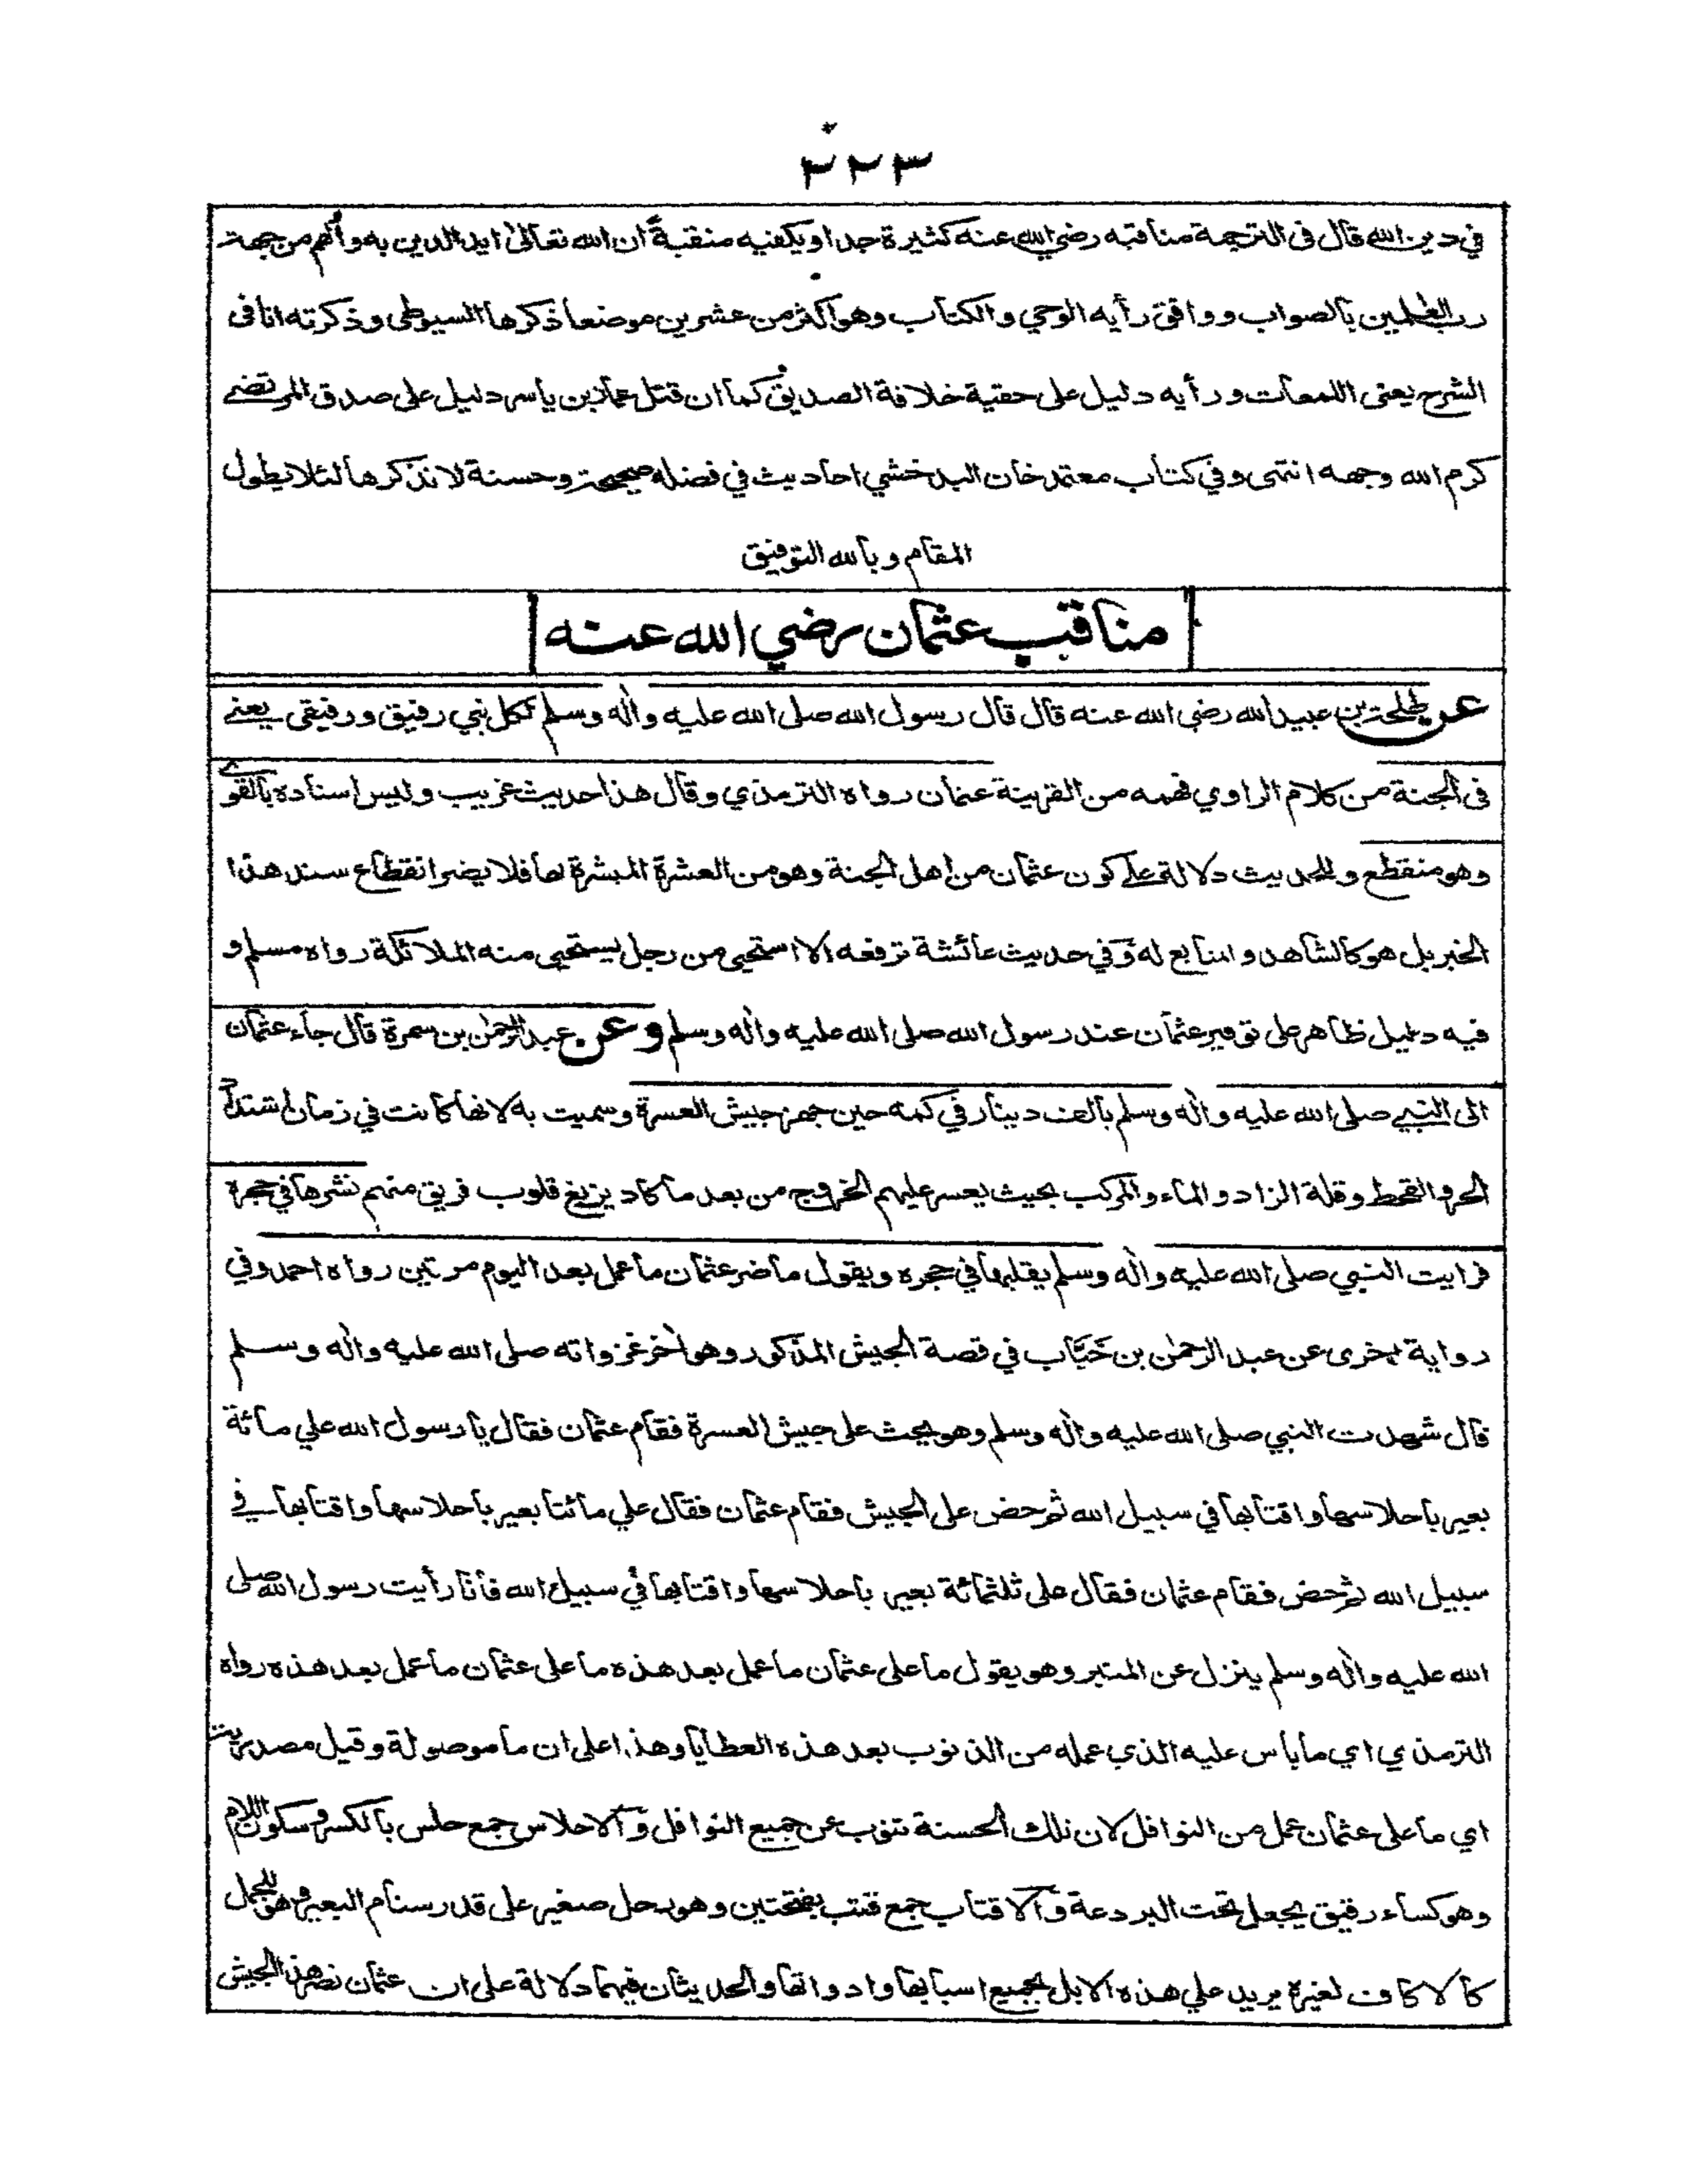 ٢٢٣
في دين الله قال فى الترجمة مناقبه رضي الله عنه كثيرة جدا ويكفنيه منقبة ان الله تعالى ايد الدين به والهم من جهة
رب العلمين بالصواب ووافق رأيه الوحي والكتاب وهو أكثر من عشرين موضعا ذكرها السيوطى وذكرته انا فى
الشرح يعنى اللمعات ورأيه دليل على حقية خلافة الصديق كما ان قتل عمار بن ياسر دليل على صدق المرتضے
كرم الله وجهه انتهى وفي كتاب معتمد خان البدخشي احاديث في فضله صحيحة وحسنة لا نذكرها لئلا يطول
المقام وبالله التوفيق
مناقب عثمان رضي الله عنه
عن طلحة بن عبيد الله رضي الله عنه قال قال رسول الله صلى الله عليه واٰله وسلم لكل نبي رفيق ورفيقى يعنے
فى الجنة من كلام الراوي فهمه من القرينة عثمان رواه الترمذي وقال هذا حديث غريب وليس اسناده بالقوے
وهو منقطع وللحديث دلالة علے كون عثمان من اهل الجنة وهو من العشرة المبشرة لها فلا يضر انقطاع سند هذا
الخبر بل هو كالشاهد والمتابع له وفي حديث عائشة ترفعه الا استحيى من رجل يستحيى منه الملائكة رواه مسلم و
فيه دليل ظاهر على توقير عثمان عند رسول الله صلى الله عليه واٰله وسلم وعن عبد الرحمٰن بن سمرة قال جاء عثمان
الى النبے صلى الله عليه واٰله وسلم بالف دينار في كمه حين جهز جيش العسرة وسميت به لانها كانت في زمان اشتداد
الحر والقحط وقلة الزاد والماء والمركب بحيث يعسر عليهم الخروج من بعد ما كاد يزيغ قلوب فريق منهم نشرها في حجره
فرايت النبي صلى الله عليه واٰله وسلم يقلبها في حجره ويقول ما ضر عثمان ما عمل بعد اليوم مرتين رواه احمد وفي
رواية اخرى عن عبد الرحمٰن بن خَبَّاب في قصة الجيش المذكور وهو اٰخر غزواته صلى الله عليه واٰله وسلم
قال شهدت النبي صلى الله عليه واٰله وسلم وهو يحث على جيش العسرة فقام عثمان فقال يا رسول الله علي مائة
بعير باحلاسها واقتابها في سبيل الله ثم حض على الجيش فقام عثمان فقال علي مائتا بعير باحلاسها واقتابها في
سبيل الله ثم حض فقام عثمان فقال على ثلثمائة بعير باحلاسها واقتابها في سبيل الله فانا رأيت رسول الله صلى
الله عليه واٰله وسلم ينزل عن المنبر وهو يقول ما على عثمان ما عمل بعد هذه ما على عثمان ما عمل بعد هذه رواه
الترمذي اي ما باس عليه الذي عمله من الذنوب بعد هذه العطايا وهذا على ان ما موصولة وقيل مصدرية
اي ما على عثمان عمل من النوافل لان تلك الحسنة تنوب عن جميع النوافل والاحلاس جمع حلس بالكسر وسكون اللام
وهو كساء رقيق يجعل تحت البردعة والاقتاب جمع قتب بفتحتين وهو رحل صغير على قدر سنام البعير وهو للجمل
كالاكاف لغيره يريد علي هذه الابل بجميع اسبابها وادواتها والحديثان فيهما دلالة على ان عثمان نصر هذا الجيش